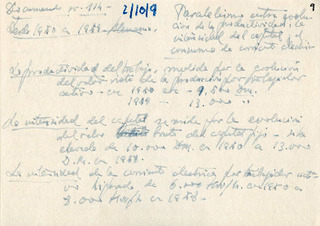 Documento nº 114
2/10/9
9
Desde 1950 a 1958. Alemania.
Paralelismo entre evolu-
ción de la productividad, la
intensidad del capital y el
consumo de corriente electrica
La productividad del trabajo, medida por la evolución
del valor neto de la producción por trabajador
activo en 1950 era 9.
1959 - 13.000 "
La intensidad del capital medida por la evolución
del valor bruto del capital fijo
elevado de 10.000 Dm. en 1950 a 13.000
D.M. en 1958.
La intensidad de la corriente electrica por trabajador
de 6.000 Kw/h. en 1950 a
9.000 Kw/h en 1958.